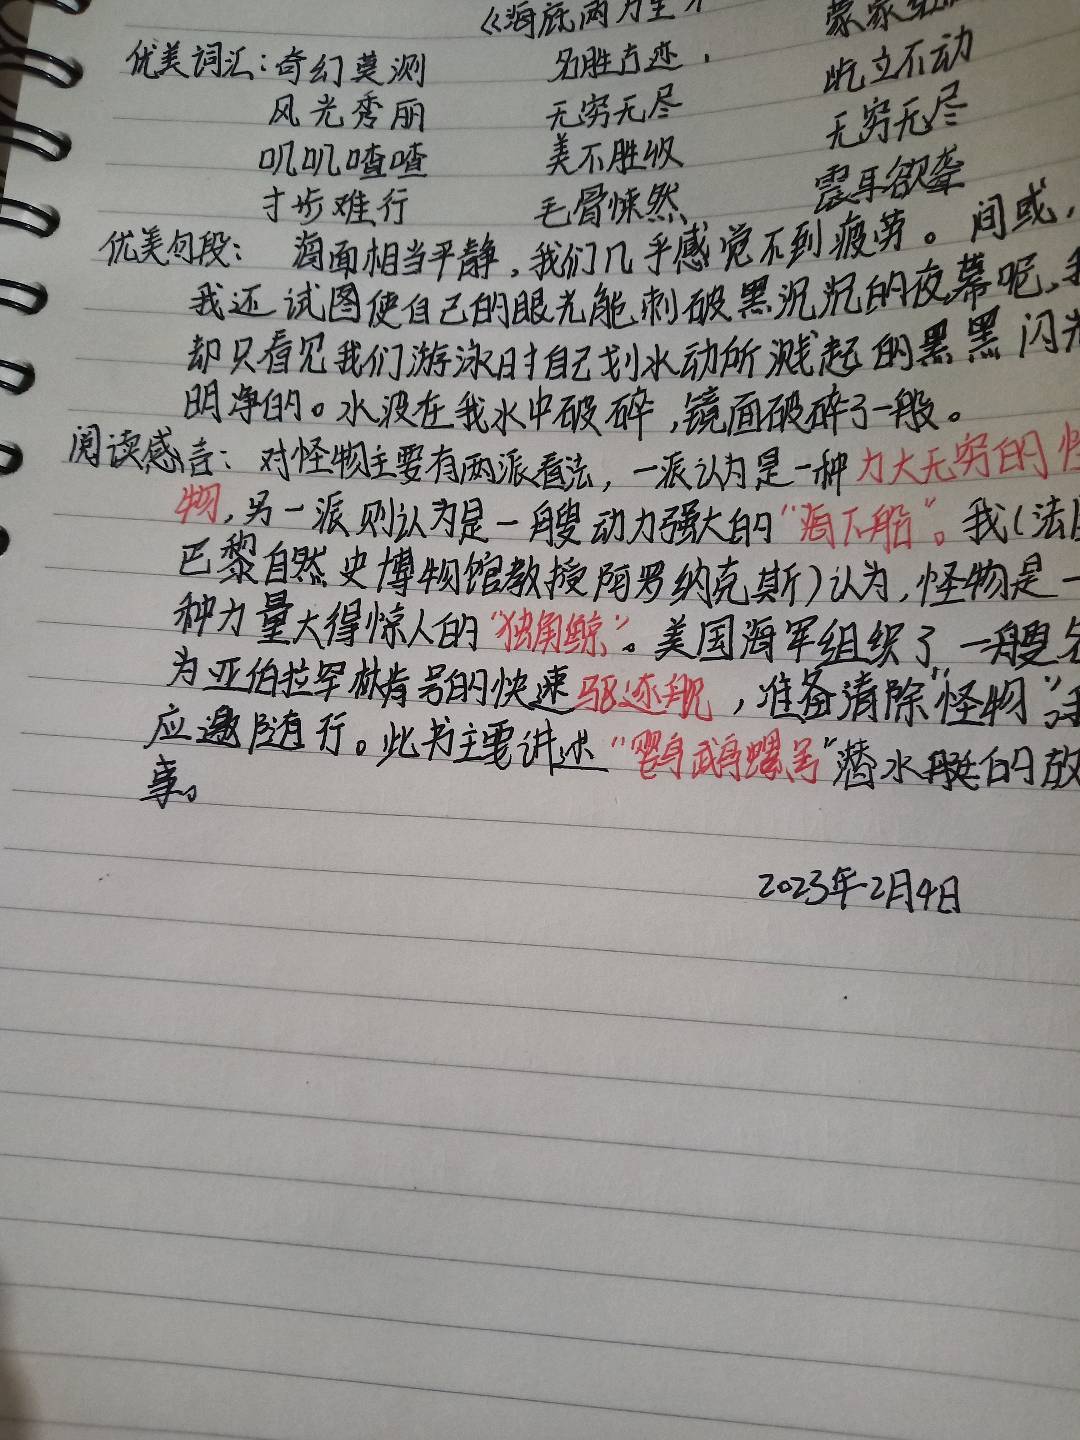 《海底两万里》
优美词汇：奇幻莫测 名胜古迹， 屹立不动
风光秀丽 无穷无尽 无穷无尽
叽叽喳喳 美不胜收 震耳欲聋
寸步难行 毛骨悚然
优美句段： 海面相当平静，我们几乎感觉不到疲劳。间或，
我还试图使自己的眼光能刺破黑沉沉的夜幕呢，我
却只看见我们游泳时自己划水动所溅起的黑黑闪光
明净的。水波在我水中破碎，镜面破碎了一般。
阅读感言： 对怪物主要有两派看法，一派认为是一种力大无穷的怪
物，另一派则认为是一艘动力强大的“海下船”。我（法国
巴黎自然史博物馆教授阿罗纳克斯）认为，怪物是一
种力量大得惊人的“独角鲸”。美国海军组织了一艘名
为亚伯拉罕林肯号的快速驱逐舰，准备清除“怪物”，我
应邀随行。此书主要讲述“鹦鹉螺号”潜水艇的故
事。
2023年2月4日